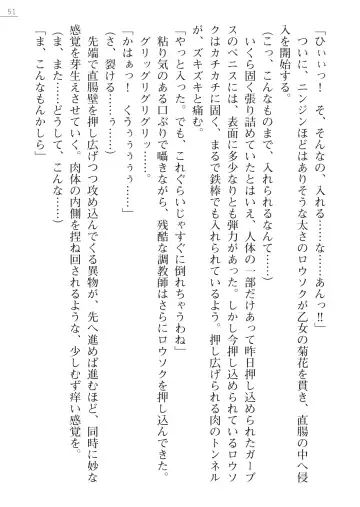 51
「ひぃぃっ!　そ、そんなの、入れる……な……あんっ!!」
ついに、ニンジンほどはありそうな太さのロウソクが乙女の菊花を貫き、直腸の中へ侵
入を開始する。
(こっ、こんなものまで、入れられるなんて……)
いくら固く張り詰めていたとはいえ、人体の一部だけあって昨日押し込められたガーブ
スのペニスには、表面に多少なりとも弾力があった。しかし今押し込められているロウソ
クはカチカチに固く、まるで鉄棒でも入れられているよう。押し広げられる肉のトンネル
が、ズキズキと痛む。
「やっと入ったわ。でも、これぐらいじゃすぐに倒れちゃうわね」
粘り気のある口ぶりで囁きながら、残酷な調教師はさらにロウソクを押し込んできた。
グリッグリグリグリッ……。
「かはぁっ!　くうぅぅぅぅぅ」
(さ、裂ける……ぅ……)
先端で直腸壁を押し広げつつ攻め込んでくる異物が、先へ進めば進むほど、同時に妙な
感覚を芽生えさせていく。肉体の内側を捏ね回されるような、少しむず痒い感覚を。
(ま、また……どうして、こんな……)
「ま、こんなもんかしら」